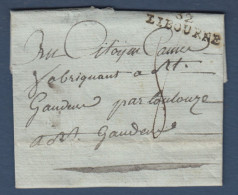 32
LIBOURNE
Au Citoyen Cames
fabriquant a St.
Gaudens par toulouze
a St. Gaudens